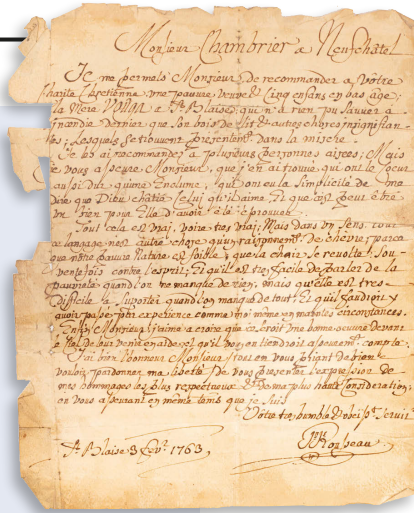 Monsieur Chambrier a Neufchâtel
Je me permets Monsieur de recommander a, Votre
Charité Chrétienne une pauvre veuve & Cinq enfans en bas age;
la Mere a St. Blaise, qui n'a rien pu Sauver a
incendie dernier que Son bois de Lit & autres choses insignifian-
tes, Lesquels se trouvent presentemt. dans la misere.
Je les ai recommander a plusieurs personnes aisées; Mais
je vous assure Monsieur, que j'en ai trouvé qui ont le Coeur
aussi dur qu'une Enclume, qui ont eu la Simplicité de me
dire que Dieu châtie Celui qu'il aime Et que c'est peut être
un bien pour Elle d'avoir été éprouvée.
Tout cela est vrai, voire tres vrai; Mais dans un Sens, tout
ce langage n'est autre chose qu'un de chevre, parce
que nôtre pauvre Nature est foible, & que la chair Se revolte Sou-
vente fois contre l'esprit; Et qu'il est tres facile de parler de la
pauvreté quand on ne manque de rien; mais qu'elle est tres-
difficile a Suporter quand on manque de tout! Et qu'il faudroit y
avoir passé par experience comme moi même en maintes circonstances.
Enfin Monsieur j'aime a croire que ce Seroit Une bonne oeuvre devant
le Ciel de leur venir en aide & qu'il vous en tiendroit assurement compte.
J'ai bien l'honneur Monsieur, tout en vous priant de bien
vouloir pardonner ma liberté De vous presenter l'expression de
mes hommages les plus respectueux & de ma plus haute Consideration;
en vous assurant en même tems que je Suis
Vôtre tres humble & obeist. Servit.
Rousseau
St. Blaise 3 1763,